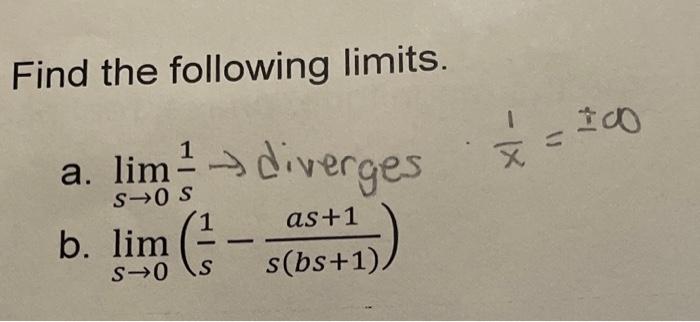 Find the following limits.
a. lim s→0 1/s → diverges · 1/x = ±∞
b. lim s→0 (1/s − as+1/s(bs+1))